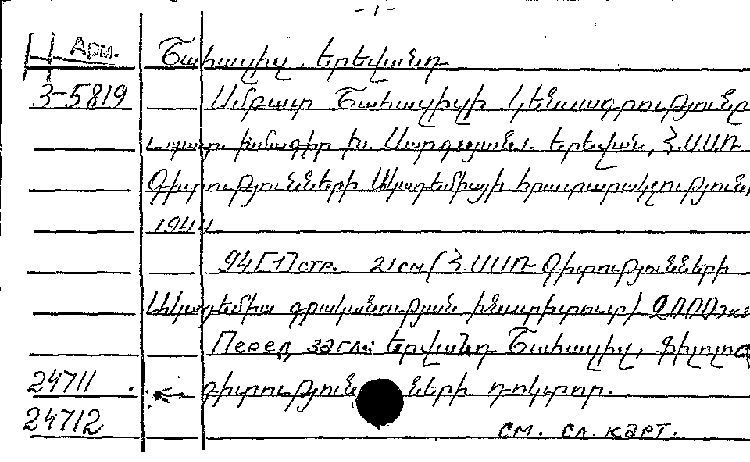 - 1 -
Арм.
Շահազիզ, Երեվանդ
3-5819 Սմբատ Շահազիզի կենսագրությունը
խմագիր Խ. Սարգսյան. Երեվան, ՀՍՍՌ
Գիտությունների Ակադեմիայի հրատարակչություն,
1944
94[-1] стр. 21 см (ՀՍՍՌ Գիտությունների
Ակադեմիա գրականության ինստիտուտ) 2000 экз
Перед загл.: Երվանդ Շահազիզ, ֆիլոլոգ
24711 գիտությունների դոկտոր.
24712 см. сл. карт.